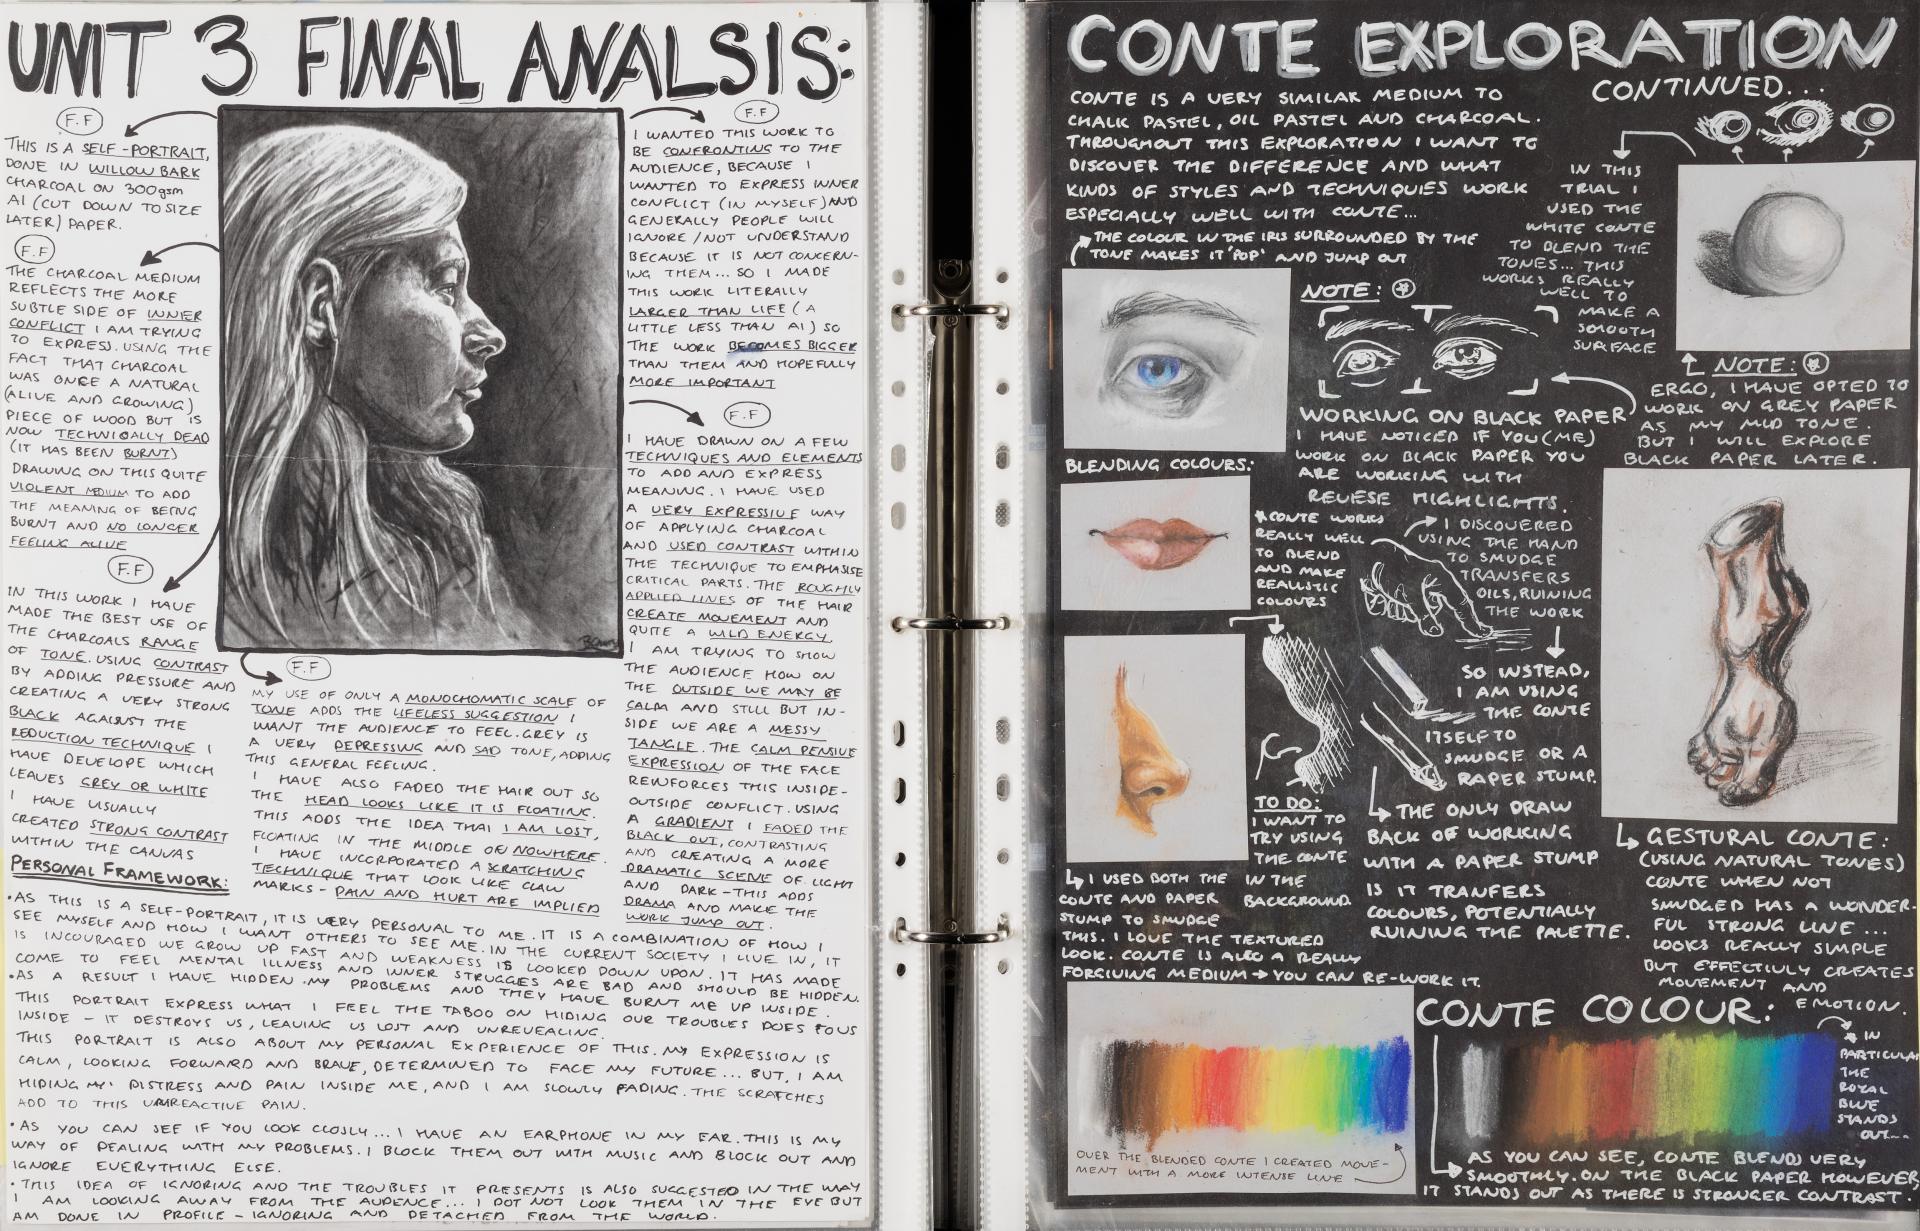 UNIT 3 FINAL ANALSIS:
F.F
THIS IS A SELF-PORTRAIT,
DONE IN WILLOW BARK
CHARCOAL ON 300gsm
A1 (CUT DOWN TO SIZE
LATER) PAPER.
F.F
THE CHARCOAL MEDIUM
REFLECTS THE MORE
SUBTLE SIDE OF INNER
CONFLICT I AM TRYING
TO EXPRESS. USING THE
FACT THAT CHARCOAL
WAS ONCE A NATURAL
(ALIVE AND GROWING)
PIECE OF WOOD BUT IS
NOW TECHNICALLY DEAD
(IT HAS BEEN BURNT)
DRAWING ON THIS QUITE
VIOLENT MEDIUM TO ADD
THE MEANING OF BEING
BURNT AND NO LONGER
FEELING ALIVE
F.F
IN THIS WORK I HAVE
MADE THE BEST USE OF
THE CHARCOALS RANGE
OF TONE. USING CONTRAST
BY ADDING PRESSURE AND
CREATING A VERY STRONG
BLACK AGAINST THE
REDUCTION TECHNIQUE I
HAVE DEVELOPE WHICH
LEAVES GREY OR WHITE
I HAVE USUALLY
CREATED STRONG CONTRAST
WITHIN THE CANVAS
F.F
MY USE OF ONLY A MONOCHOMATIC SCALE OF
TONE ADDS THE LIFELESS SUGGESTION I
WANT THE AUDIENCE TO FEEL. GREY IS
A VERY DEPRESSING AND SAD TONE, ADDING
THIS GENERAL FEELING.
I HAVE ALSO FADED THE HAIR OUT SO
THE HEAD LOOKS LIKE IT IS FLOATING.
THIS ADDS THE IDEA THAT I AM LOST,
FLOATING IN THE MIDDLE OF NOWHERE.
I HAVE INCORPORATED A SCRATCHING
TECHNIQUE THAT LOOK LIKE CLAW
MARKS - PAIN AND HURT ARE IMPLIED
F.F
I WANTED THIS WORK TO
BE CONFRONTING TO THE
AUDIENCE, BECAUSE I
WANTED TO EXPRESS INNER
CONFLICT (IN MYSELF) AND
GENERALLY PEOPLE WILL
IGNORE / NOT UNDERSTAND
BECAUSE IT IS NOT CONCERN-
ING THEM... SO I MADE
THIS WORK LITERALLY
LARGER THAN LIFE (A
LITTLE LESS THAN A1) SO
THE WORK BECOMES BIGGER
THAN THEM AND HOPEFULLY
MORE IMPORTANT
F.F
I HAVE DRAWN ON A FEW
TECHNIQUES AND ELEMENTS
TO ADD AND EXPRESS
MEANING. I HAVE USED
A VERY EXPRESSIVE WAY
OF APPLYING CHARCOAL
AND USED CONTRAST WITHIN
THE TECHNIQUE TO EMPHASISE
CRITICAL PARTS. THE ROUGHLY
APPLIED LINES OF THE HAIR
CREATE MOVEMENT AND
QUITE A WILD ENERGY.
I AM TRYING TO SHOW
THE AUDIENCE HOW ON
THE OUTSIDE WE MAY BE
CALM AND STILL BUT IN-
SIDE WE ARE A MESSY
TANGLE. THE CALM PENSIVE
EXPRESSION OF THE FACE
REINFORCES THIS INSIDE-
OUTSIDE CONFLICT. USING
A GRADIENT I FADED THE
BLACK OUT, CONTRASTING
AND CREATING A MORE
DRAMATIC SCENE OF LIGHT
AND DARK - THIS ADDS
DRAMA AND MAKE THE
WORK JUMP OUT.
PERSONAL FRAMEWORK:
• AS THIS IS A SELF-PORTRAIT, IT IS VERY PERSONAL TO ME. IT IS A COMBINATION OF HOW I
SEE MYSELF AND HOW I WANT OTHERS TO SEE ME. IN THE CURRENT SOCIETY I LIVE IN, IT
IS INCOURAGED WE GROW UP FAST AND WEAKNESS IS LOOKED DOWN UPON. IT HAS MADE
COME TO FEEL MENTAL ILLNESS AND INNER STRUGGES ARE BAD AND SHOULD BE HIDDEN.
• AS A RESULT I HAVE HIDDEN MY PROBLEMS AND THEY HAVE BURNT ME UP INSIDE.
THIS PORTRAIT EXPRESS WHAT I FEEL THE TABOO ON HIDING OUR TROUBLES DOES TO US
INSIDE - IT DESTROYS US, LEAVING US LOST AND UNREVEALING.
THIS PORTRAIT IS ALSO ABOUT MY PERSONAL EXPERIENCE OF THIS. MY EXPRESSION IS
CALM, LOOKING FORWARD AND BRAVE, DETERMINED TO FACE MY FUTURE... BUT, I AM
HIDING MY DISTRESS AND PAIN INSIDE ME, AND I AM SLOWLY FADING. THE SCRATCHES
ADD TO THIS UNREACTIVE PAIN.
• AS YOU CAN SEE IF YOU LOOK CLOSLY... I HAVE AN EARPHONE IN MY EAR. THIS IS MY
WAY OF DEALING WITH MY PROBLEMS. I BLOCK THEM OUT WITH MUSIC AND BLOCK OUT AND
IGNORE EVERYTHING ELSE.
• THIS IDEA OF IGNORING AND THE TROUBLES IT PRESENTS IS ALSO SUGGESTED IN THE WAY
I AM LOOKING AWAY FROM THE AUDENCE... I DOT NOT LOOK THEM IN THE EYE BUT
AM DONE IN PROFILE - IGNORING AND DETACHED FROM THE WORLD.
CONTE EXPLORATION
CONTINUED...
CONTE IS A VERY SIMILAR MEDIUM TO
CHALK PASTEL, OIL PASTEL AND CHARCOAL.
THROUGHOUT THIS EXPLORATION I WANT TO
DISCOVER THE DIFFERENCE AND WHAT
KINDS OF STYLES AND TECHNIQUIES WORK
ESPECIALLY WELL WITH CONTE...
THE COLOUR IN THE IRIS SURROUNDED BY THE
TONE MAKES IT 'POP' AND JUMP OUT
IN THIS
TRIAL I
USED THE
WHITE CONTE
TO BLEND THE
TONES... THIS
WORKS REALLY
WELL TO
MAKE A
SMOOTH
SURFACE
NOTE:
ERGO, I HAVE OPTED TO
WORK ON GREY PAPER
AS MY MID TONE.
BUT I WILL EXPLORE
BLACK PAPER LATER.
NOTE:
WORKING ON BLACK PAPER
I HAVE NOTICED IF YOU (ME)
WORK ON BLACK PAPER YOU
ARE WORKING WITH
REVESE HIGHLIGHTS.
BLENDING COLOURS:
* CONTE WORKS
REALLY WELL
TO BLEND
AND MAKE
REALISTIC
COLOURS
I DISCOVERED
USING THE HAND
TO SMUDGE
TRANSFERS
OILS, RUINING
THE WORK
SO INSTEAD,
I AM USING
THE CONTE
ITSELF TO
SMUDGE OR A
PAPER STUMP.
TO DO:
I WANT TO
TRY USING
THE CONTE
IN THE
BACKGROUND.
THE ONLY DRAW
BACK OF WORKING
WITH A PAPER STUMP
IS IT TRANFERS
COLOURS, POTENTIALLY
RUINING THE PALETTE.
I USED BOTH THE
CONTE AND PAPER
STUMP TO SMUDGE
THIS. I LOVE THE TEXTURED
LOOK. CONTE IS ALSO A REALLY
FORGIVING MEDIUM → YOU CAN RE-WORK IT.
GESTURAL CONTE:
(USING NATURAL TONES)
CONTE WHEN NOT
SMUDGED HAS A WONDER-
FUL STRONG LINE...
LOOKS REALLY SIMPLE
BUT EFFECTIVLY CREATES
MOVEMENT AND
EMOTION.
CONTE COLOUR:
* IN
PARTICULAR
THE
ROYAL
BLUE
STANDS
OUT...
OVER THE BLENDED CONTE I CREATED MOVE-
MENT WITH A MORE INTENSE LINE
AS YOU CAN SEE, CONTE BLENDS VERY
SMOOTHLY. ON THE BLACK PAPER HOWEVER,
IT STANDS OUT AS THERE IS STRONGER CONTRAST.